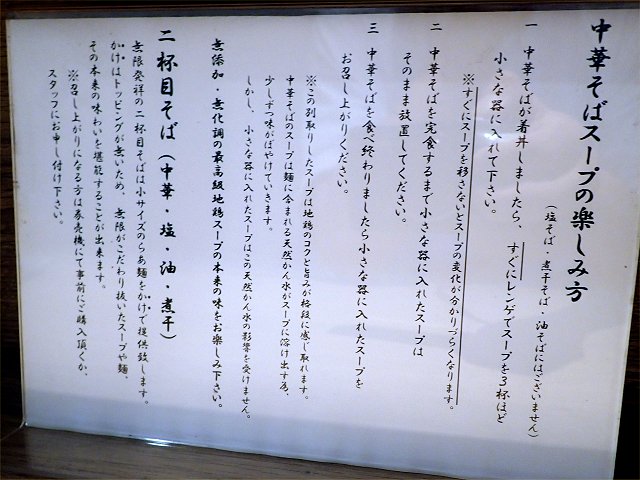 中華そばスープの楽しみ方
（塩そば・煮干そば・油そばにはございません）
一 中華そばが着丼しましたら、すぐにレンゲでスープを３杯ほど
小さな器に入れて下さい。
※すぐにスープを移さないとスープの変化が分かりづらくなります。
二 中華そばを完食するまで小さな器に入れたスープは
そのまま放置してください。
三 中華そばを食べ終わりましたら小さな器に入れたスープを
お召し上がりください。
※この別取りしたスープは地鶏のコクと旨みが格段に感じ取れます。
中華そばのスープは麺に含まれる天然かん水がスープに溶け出す為、
少しずつ味がぼやけていきます。
しかし、小さな器に入れたスープはこの天然かん水の影響を受けません。
無添加・無化調の最高級地鶏スープの本来の味をお楽しみ下さい。
二杯目そば（中華・塩・油・煮干）
無限発祥の二杯目そばは小サイズのらあ麺をかけで提供致します。
かけはトッピングが無いため、無限がこだわり抜いたスープや麺、
その本来の味わいを堪能することが出来ます。
※召し上がりになる方は券売機にて事前にご購入頂くか、
スタッフにお申し付け下さい。